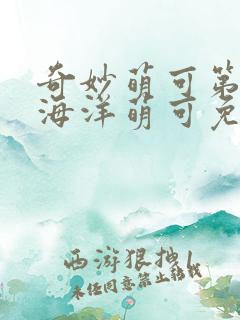 奇妙萌可第
海洋萌可免
西游狠抽1
未经同意禁止转载